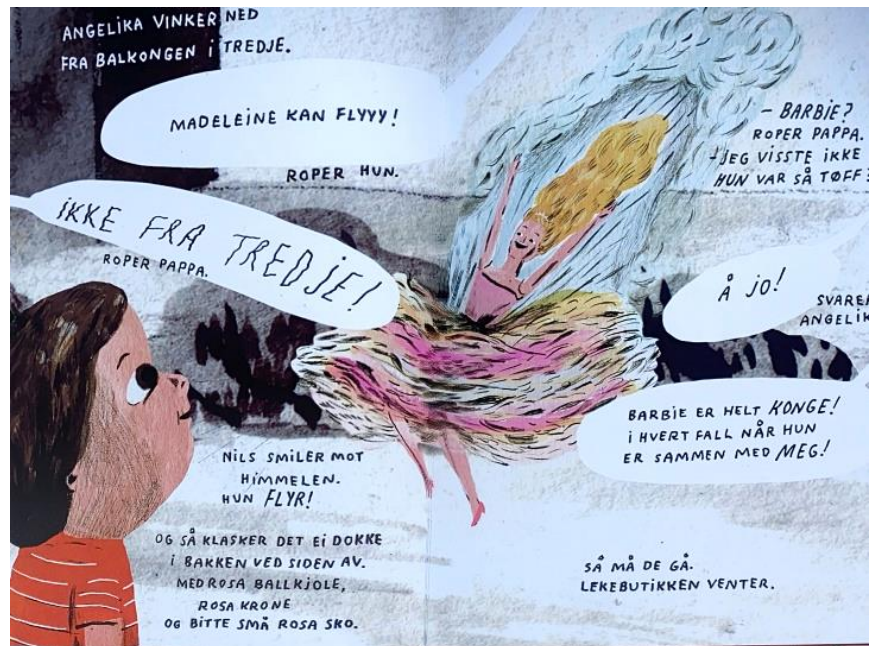 ANGELIKA VINKER NED
FRA BALKONGEN i TREDJE.
MADELEINE KAN FLYYY!
ROPER HUN.
iKKE FRA TREDJE!
ROPER PAPPA.
- BARBIE?
ROPER PAPPA.
- JEG VISSTE IKKE
HUN VAR SÅ TØFF?
Å JO!
SVARER
ANGELIK
BARBIE ER HELT KONGE!
i HVERT FALL NÅR HUN
ER SAMMEN MED MEG!
NILS SMILER MOT
HIMMELEN.
HUN FLYR!
OG SÅ KLASKER DET Ei DOKKE
i BAKKEN VED SIDEN AV.
MED ROSA BALLKJOLE,
ROSA KRONE
OG BITTE SMÅ ROSA SKO.
SÅ MÅ DE GÅ.
LEKEBUTIKKEN VENTER.